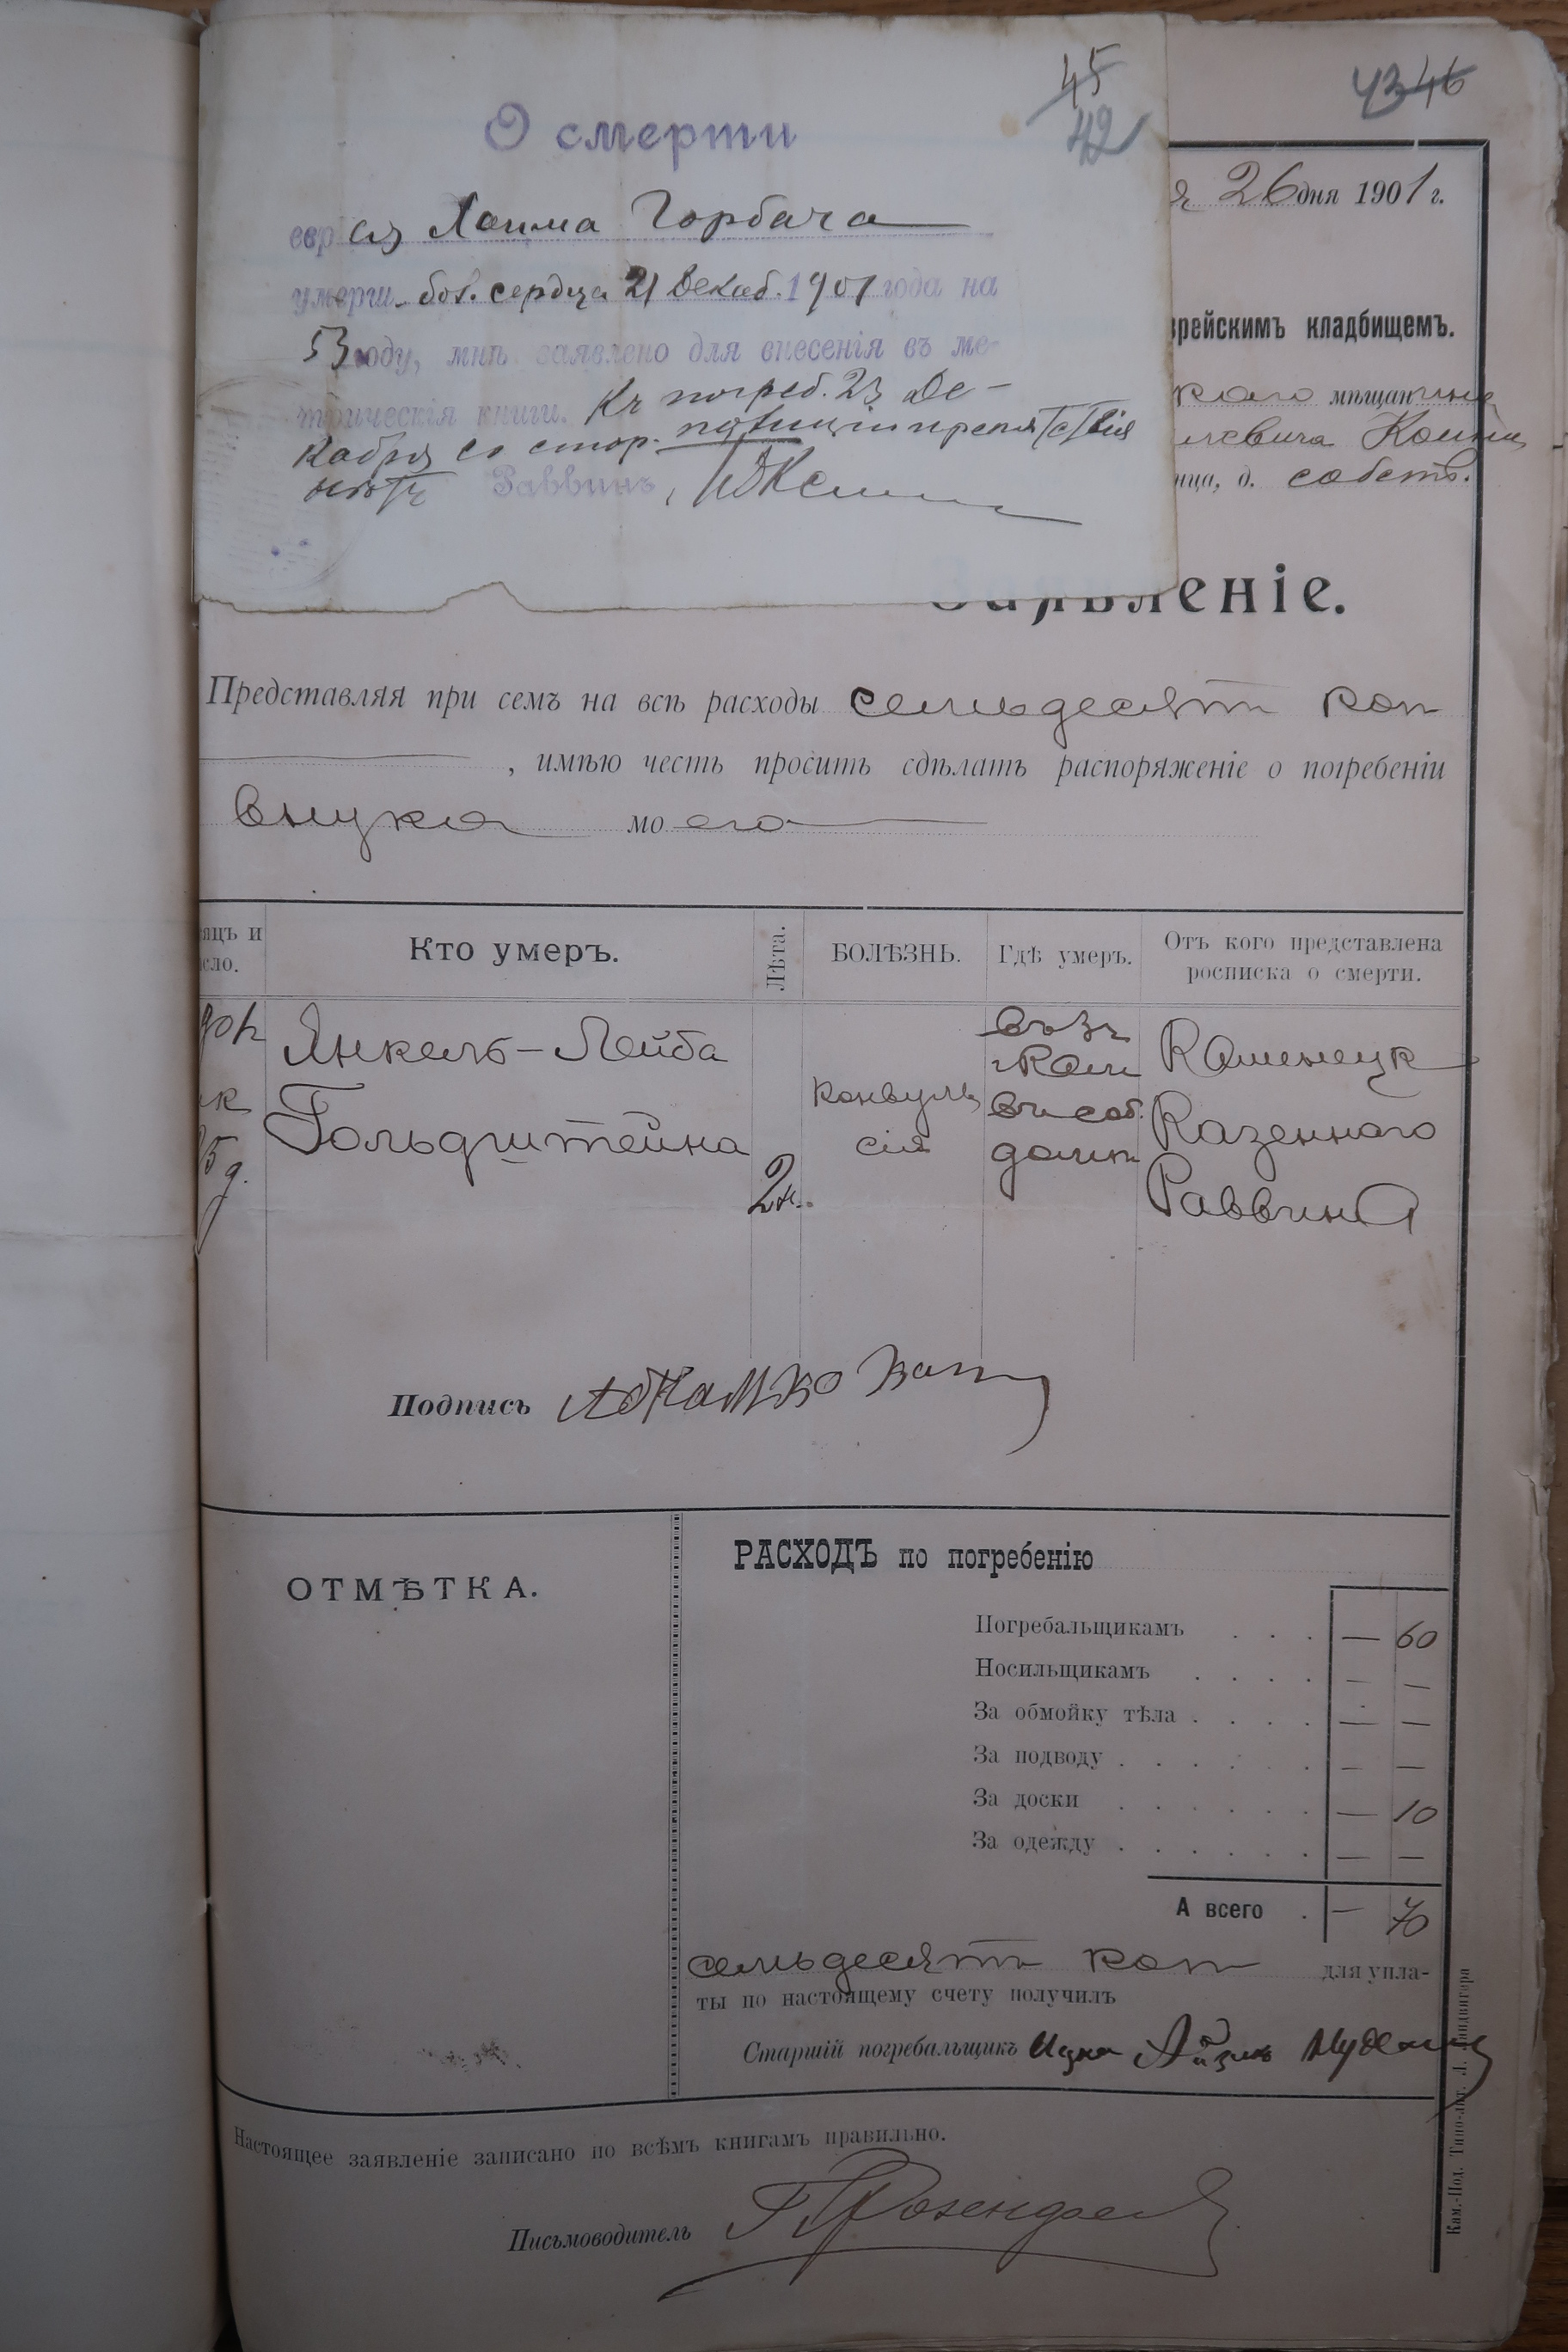 45
42
43 46
О смерти
евр ея Хаима Горбача
умерш. бол. сердца 21 Декаб. 1901 года на
53 году, мнѣ заявлено для внесенія въ ме-
трическія книги. Къ погреб. 23 Де-
кабря со стор. полиціи препятствія
нѣтъ Раввинъ,
26 дня 1901 г.
врейскимъ кладбищемъ.
каго мѣщанина
ица, д. собств.
Заявленіе.
Представляя при семъ на всѣ расходы семьдесятъ коп
, имѣю честь просить сдѣлать распоряженіе о погребеніи
внука моего
яцъ и
сло.
Кто умеръ.
Лѣта.
БОЛѢЗНЬ.
Гдѣ умеръ.
Отъ кого представлена
росписка о смерти.
Янкель-Лейба
Гольдштейна
2н.
конвуль
сія
въ соб.
домѣ
Каменецк
Казеннаго
Раввина
Подпись
ОТМѢТКА.
РАСХОДЪ по погребенію
Погребальщикамъ . . . — 60
Носильщикамъ . . . . — —
За обмойку тѣла . . . . — —
За подводу . . . . . . — —
За доски . . . . . . — 10
За одежду . . . . . . — —
А всего . — 70
семьдесятъ коп для упла-
ты по настоящему счету получилъ
Старшій погребальщикъ Ицко Айзикъ
Настоящее заявленіе записано по всѣмъ книгамъ правильно.
Письмоводитель Розенфельд
Кам.-Под. Типо-лит. Л. Ландвигера